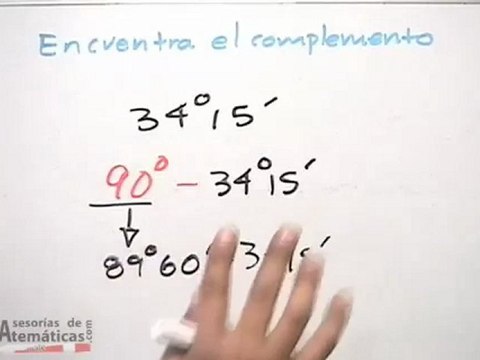 Encuentra el complemento
34°15′
90° - 34°15′
89°60
Asesorías de
Atemáticas.com